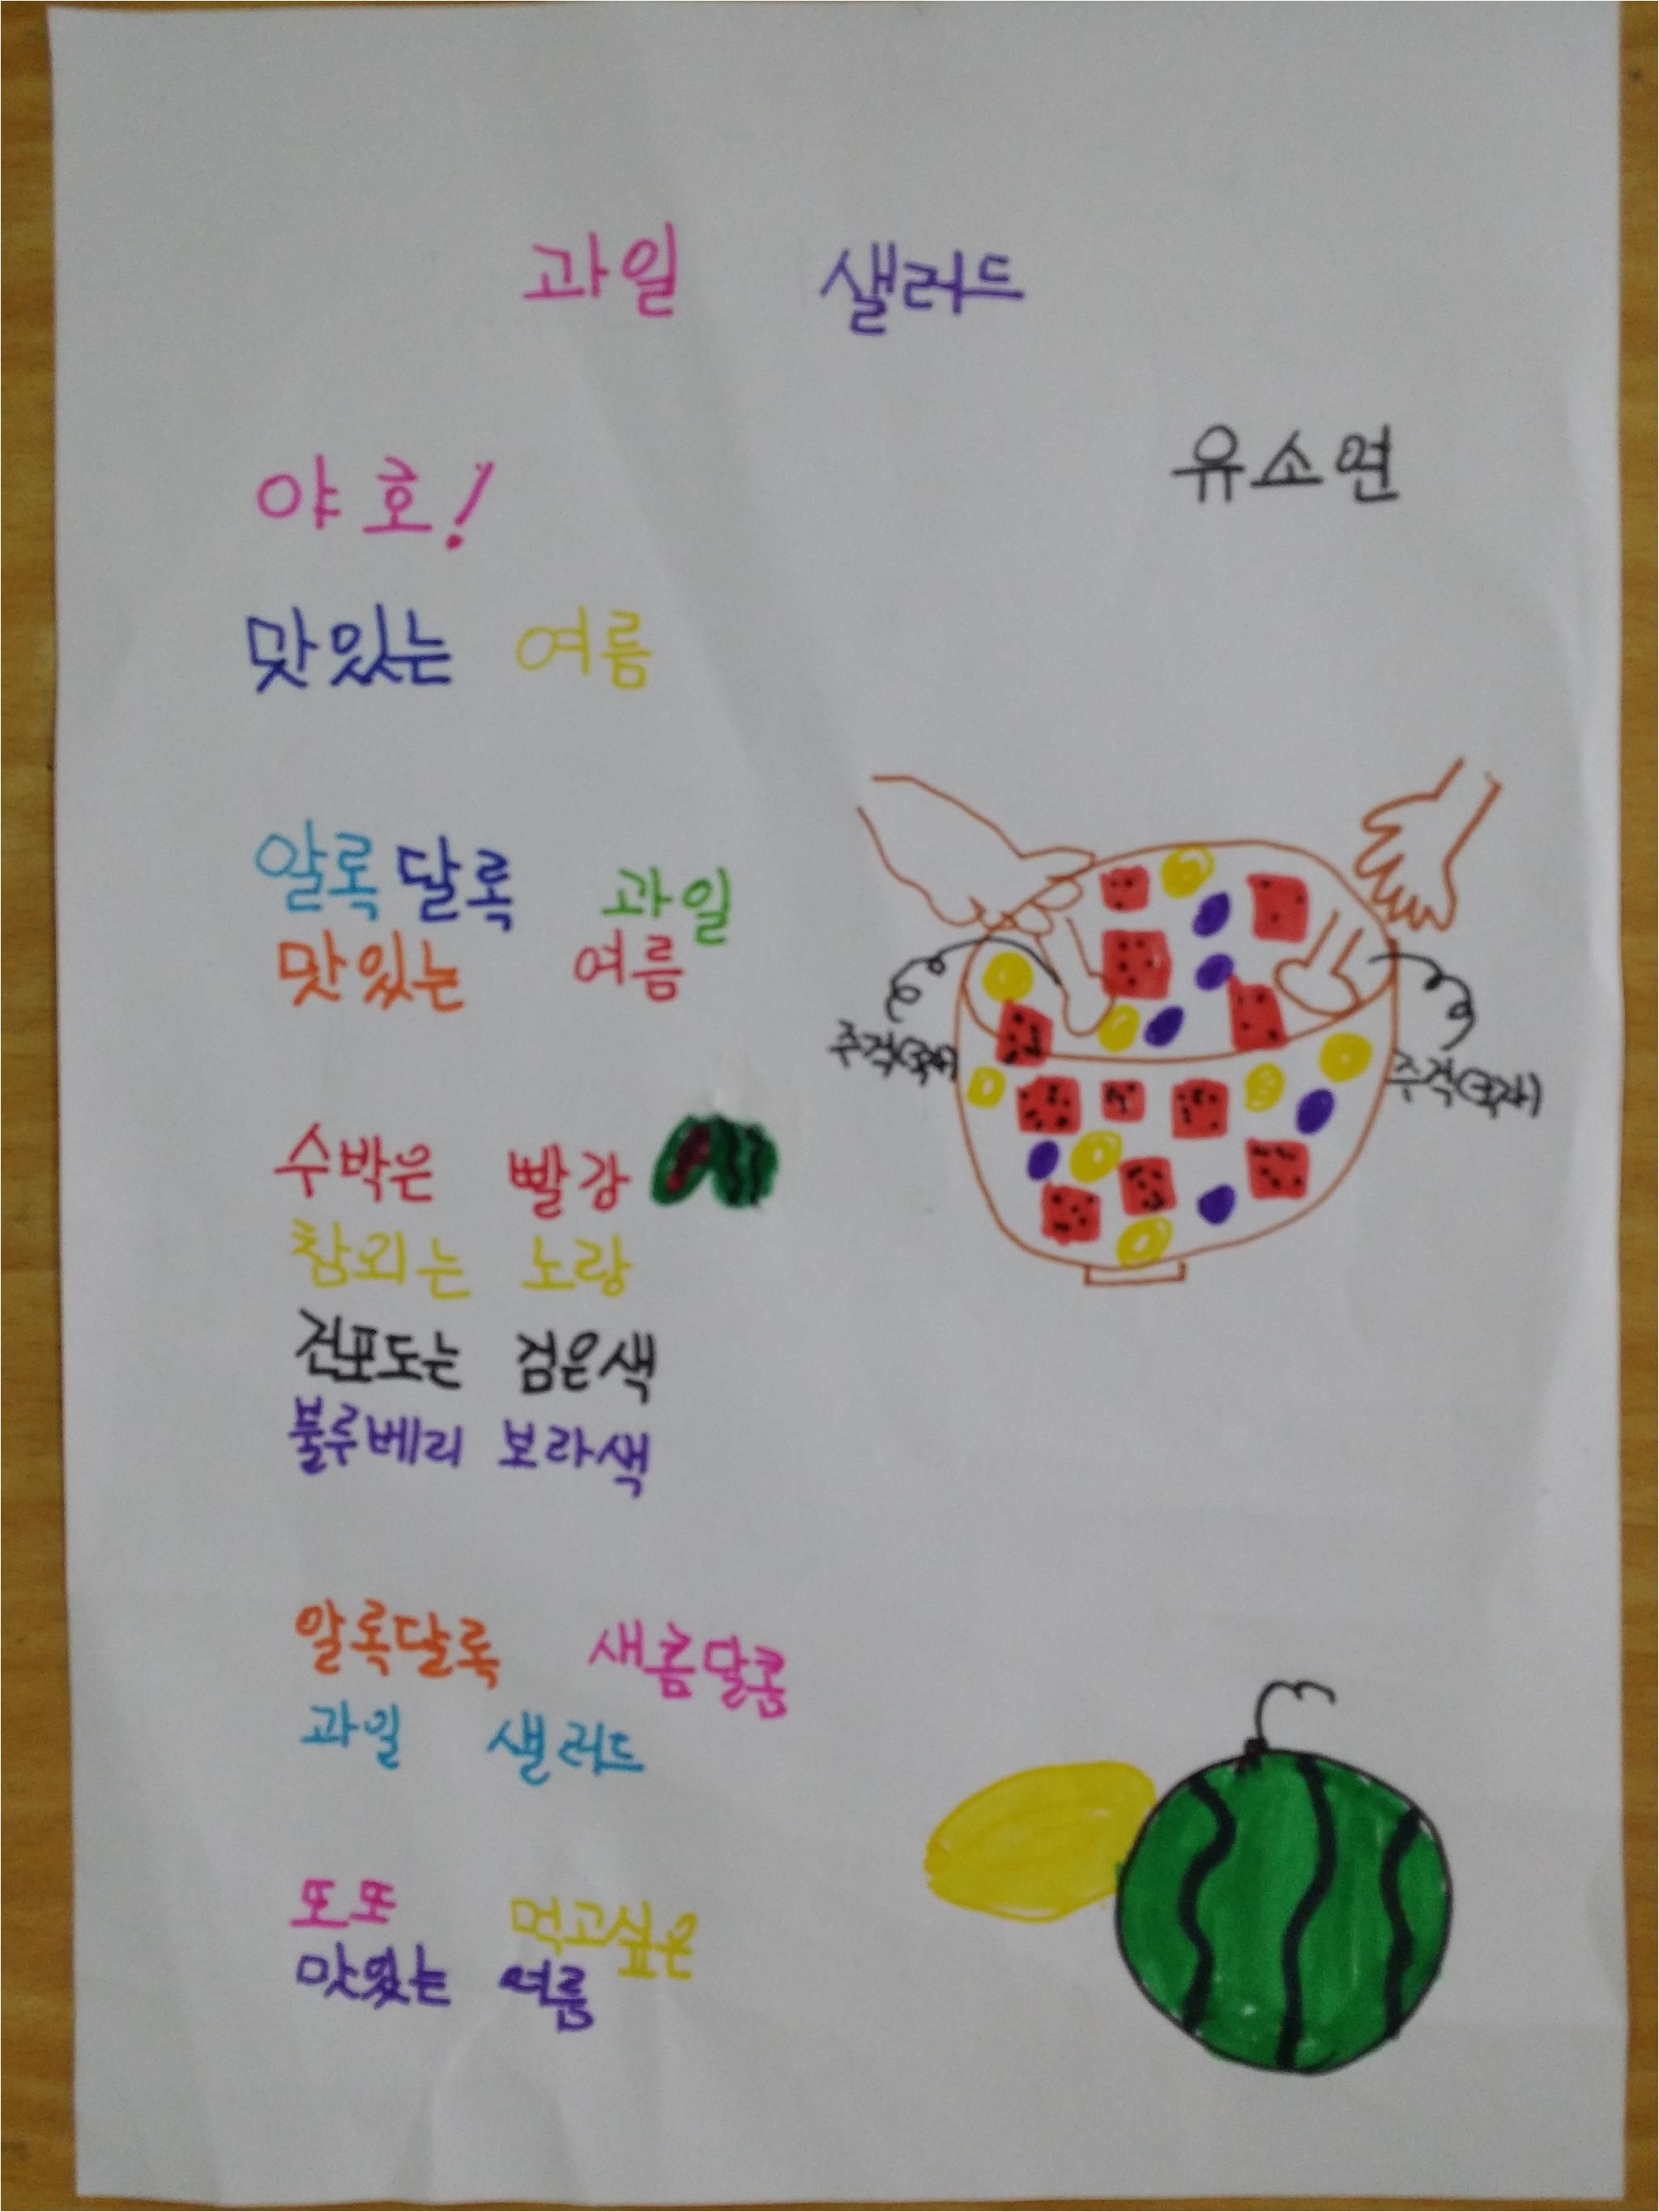 과일 샐러드
유소연
야호!
맛있는 여름
알록달록 과일
맛있는 여름
수박은 빨강
참외는 노랑
건포도는 검은색
블루베리 보라색
알록달록 새콤달콤
과일 샐러드
또또 먹고싶은
맛있는 여름
주걱
주걱